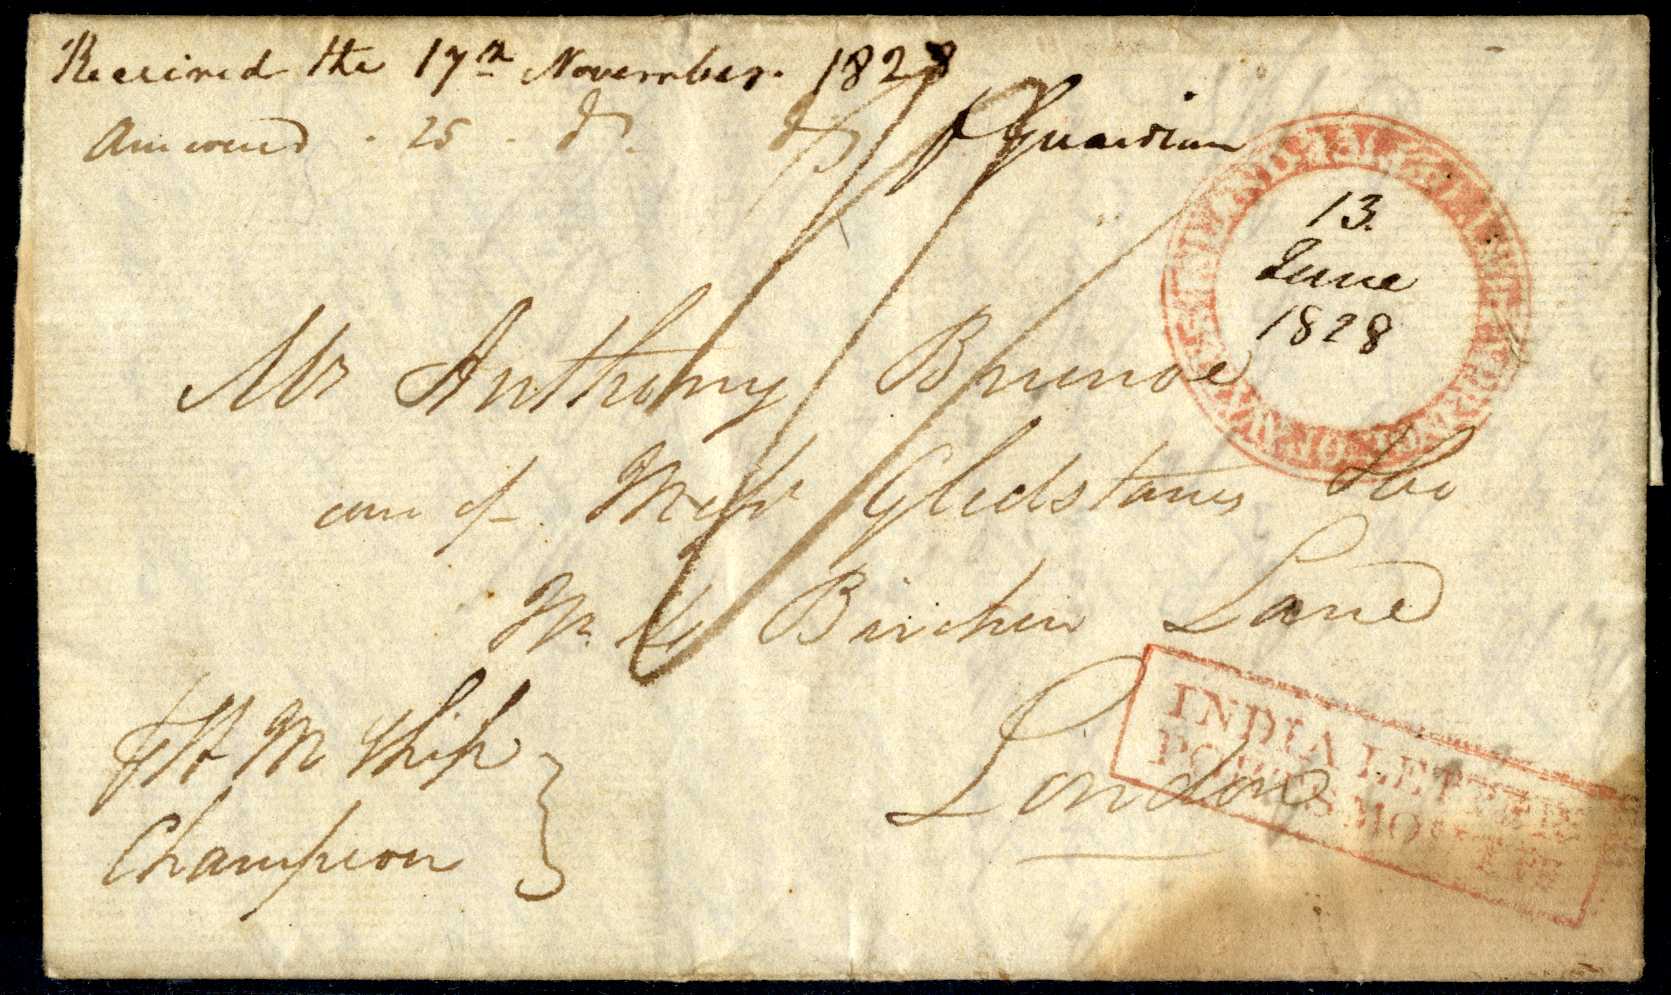 Received the 17th November. 1828
Answered . 25 . do. do
p Guardian
13.
June
1828
Mr Anthony Brunoe
care of Messrs Gledstanes & Co
Birchin Lane
London
p H M Ship
Champion
INDIA LETTER
PORTSMOUTH